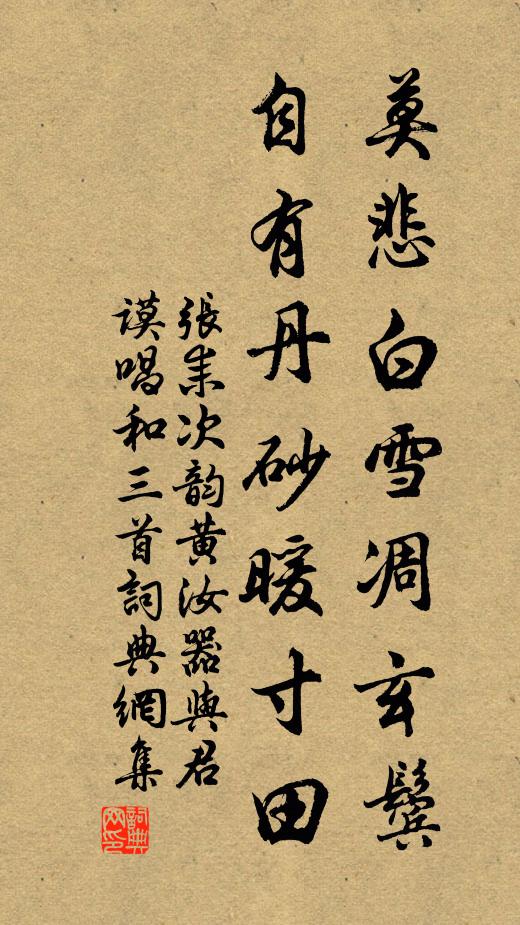 莫悲白雪凋玄鬢
自有丹砂暖寸田
張耒次韵黄汝器與君
謨唱和三首詞典網集
詞典网印